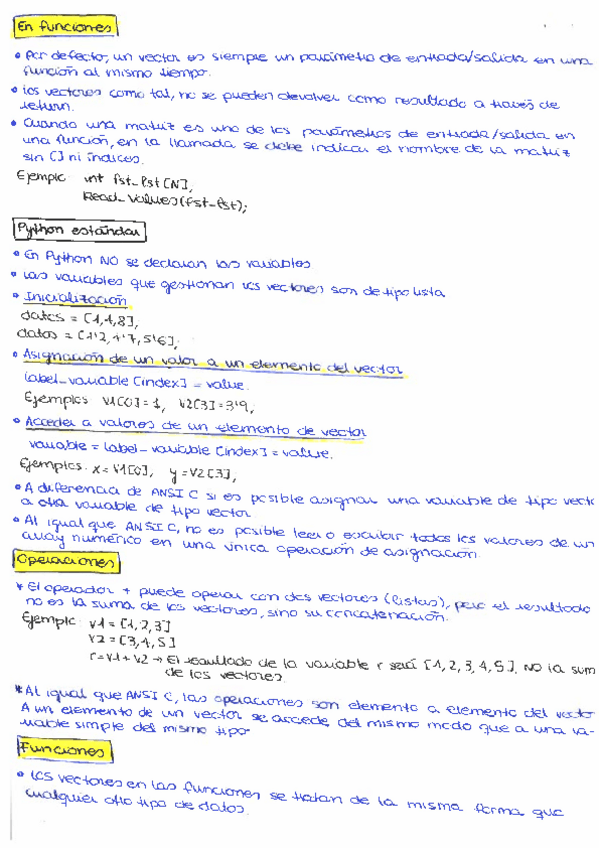 En funciones
• Por defecto, un vector es siempre un parámetro de entrada/salida en una
función al mismo tiempo.
• Los vectores como tal, no se pueden devolver como resultado a través de
return.
• Cuando una matriz es uno de los parámetros de entrada/salida en
una función, en la llamada se debe indicar el nombre de la matriz
sin [] ni índices.
Ejemplo: int fst_lst[N];
Read_values(fst_lst);
Python estándar
• En Python NO se declaran las variables
• Las variables que gestionan los vectores son de tipo lista
• Inicialización
datos = [1,4,8];
datos = [1'2, 4'7, 5'6];
• Asignación de un valor a un elemento del vector
label_variable [index] = value.
Ejemplos: V1[0]=1, V2[3]=3'9;
• Acceder a valores de un elemento de vector
variable = label_variable [index] = value.
Ejemplos: x = V1[0], y = V2[3],
• A diferencia de ANSI C si es posible asignar una variable de tipo vecto
a otra variable de tipo vector.
• Al igual que ANSI C, no es posible leer o escribir todos los valores de un
array numérico en una única operación de asignación.
Operaciones
* El operador + puede operar con dos vectores (listas), pero el resultado
no es la suma de los vectores, sino su concatenación.
Ejemplo: v1 = [1,2,3]
v2 = [3,4,5]
r = v1 + v2 → El resultado de la variable r será [1,2,3,4,5], NO la sum
de los vectores.
* Al igual que ANSI C, las operaciones son elemento a elemento del vector
A un elemento de un vector se accede del mismo modo que a una va-
riable simple del mismo tipo
Funciones
• Los vectores en las funciones se tratan de la misma forma que
cualquier otro tipo de datos.